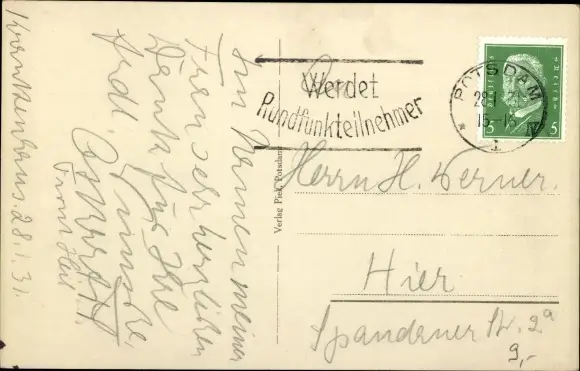 Krankenhaus 28.1.31.
Im Namen meiner
Frau sehr herzlichen
Dank für Ihre
frdl. Wünsche.
Werdet
Rundfunkteilnehmer
POTSDAM
28.1.
15-16
5 5
Verlag Piek, Potsdam
Herrn H. Werner.
Hier
Spandauer Str. 2a
9,-